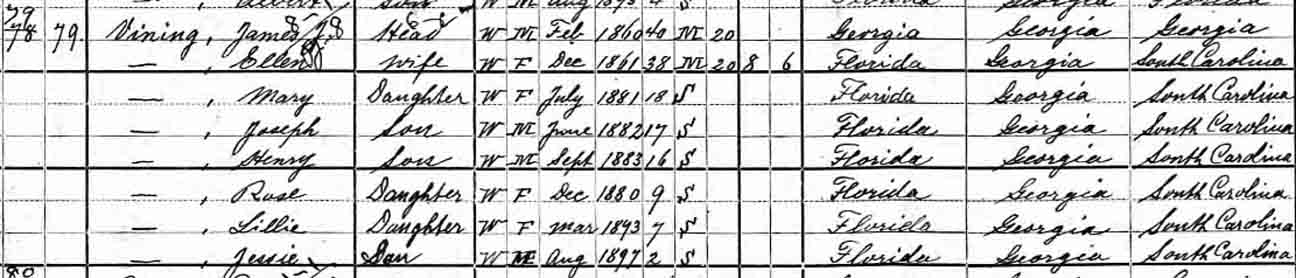 79
Albert Son W M Aug 1895 4 S Florida Georgia Florida
78 79. Vining, James J. Head W M Feb 1860 40 M 20 Georgia Georgia Georgia
— , Ellen Wife W F Dec 1861 38 M 20 8 6 Florida Georgia South Carolina
— , Mary Daughter W F July 1881 18 S Florida Georgia South Carolina
— , Joseph Son W M June 1882 17 S Florida Georgia South Carolina
— , Henry Son W M Sept 1883 16 S Florida Georgia South Carolina
— , Rose Daughter W F Dec 1880 9 S Florida Georgia South Carolina
— , Lillie Daughter W F Mar 1893 7 S Florida Georgia South Carolina
— , Jessie Son W M Aug 1897 2 S Florida Georgia South Carolina
80